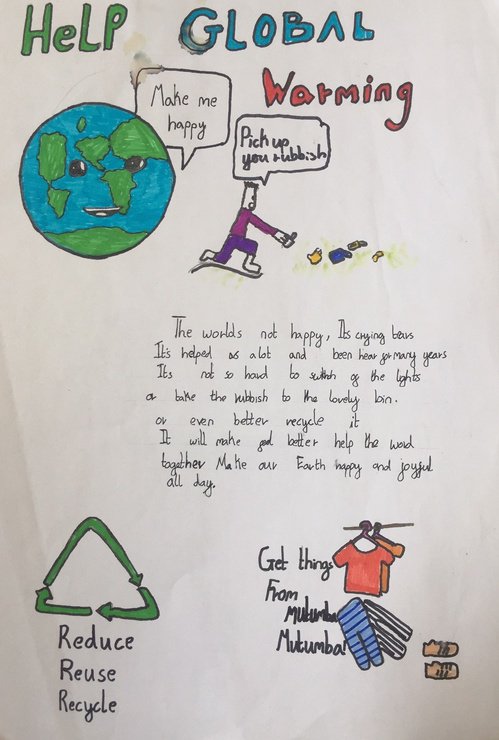 HELP GLOBAL
Warming
Make me
happy
Pick up
you rubbish
The worlds not happy, Its crying tears
It's helped as alot and been hear for many years
Its not so hard to switch of the lights
or take the rubbish to the lovely bin.
or even better recycle it
It will make good better help the word
together Make our Earth happy and joyful
all day.
Reduce
Reuse
Recycle
Get things
From
Mutumba
Mutumba!